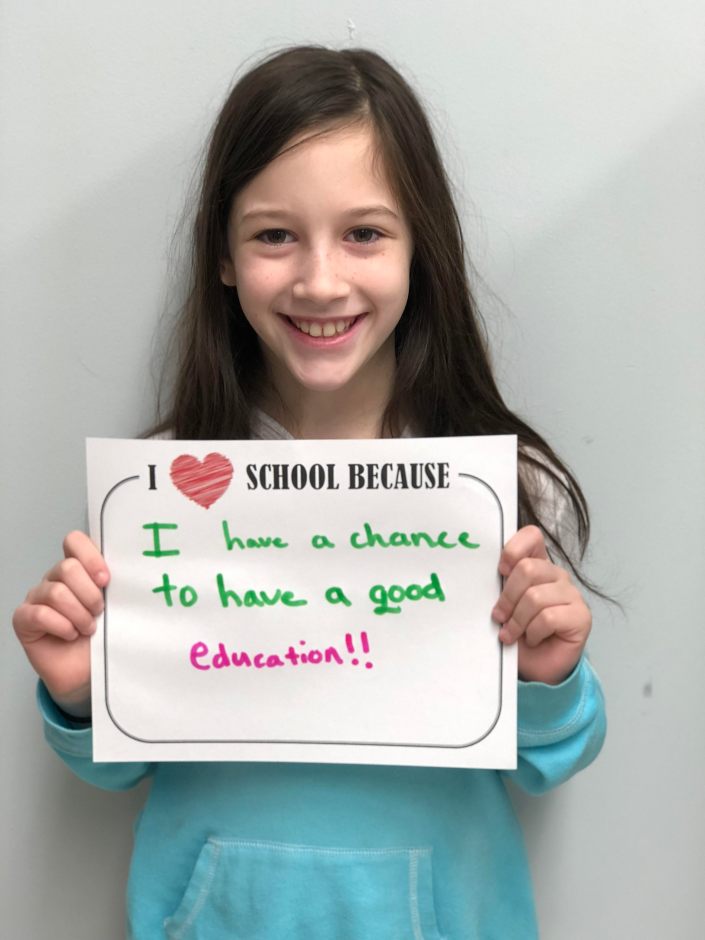 I ❤ SCHOOL BECAUSE
I have a chance
to have a good
education!!